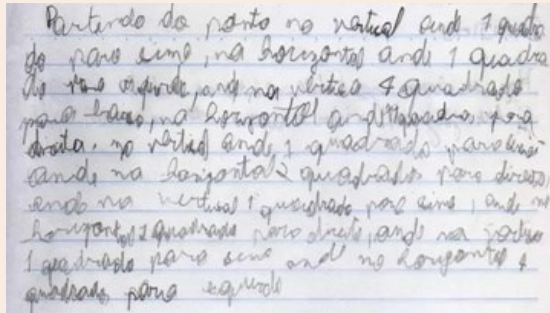 Partindo do ponto na vertical ande 1 quadra
do para cima, na horizontal ande 1 quadra
do para esquerda, ande na vertica 4 quadrado
para baixo, na horizontal ande quadrados para
direita, na vertical ande 1 quadrado para cima
ande na horizontal 2 quadrados para direita,
ande na vertical 1 quadrado para cima, ande na
horizontal 2 quadrado para direita, ande na
1 quadrado para cima ande na horizontal 4
quadrado para esquerda